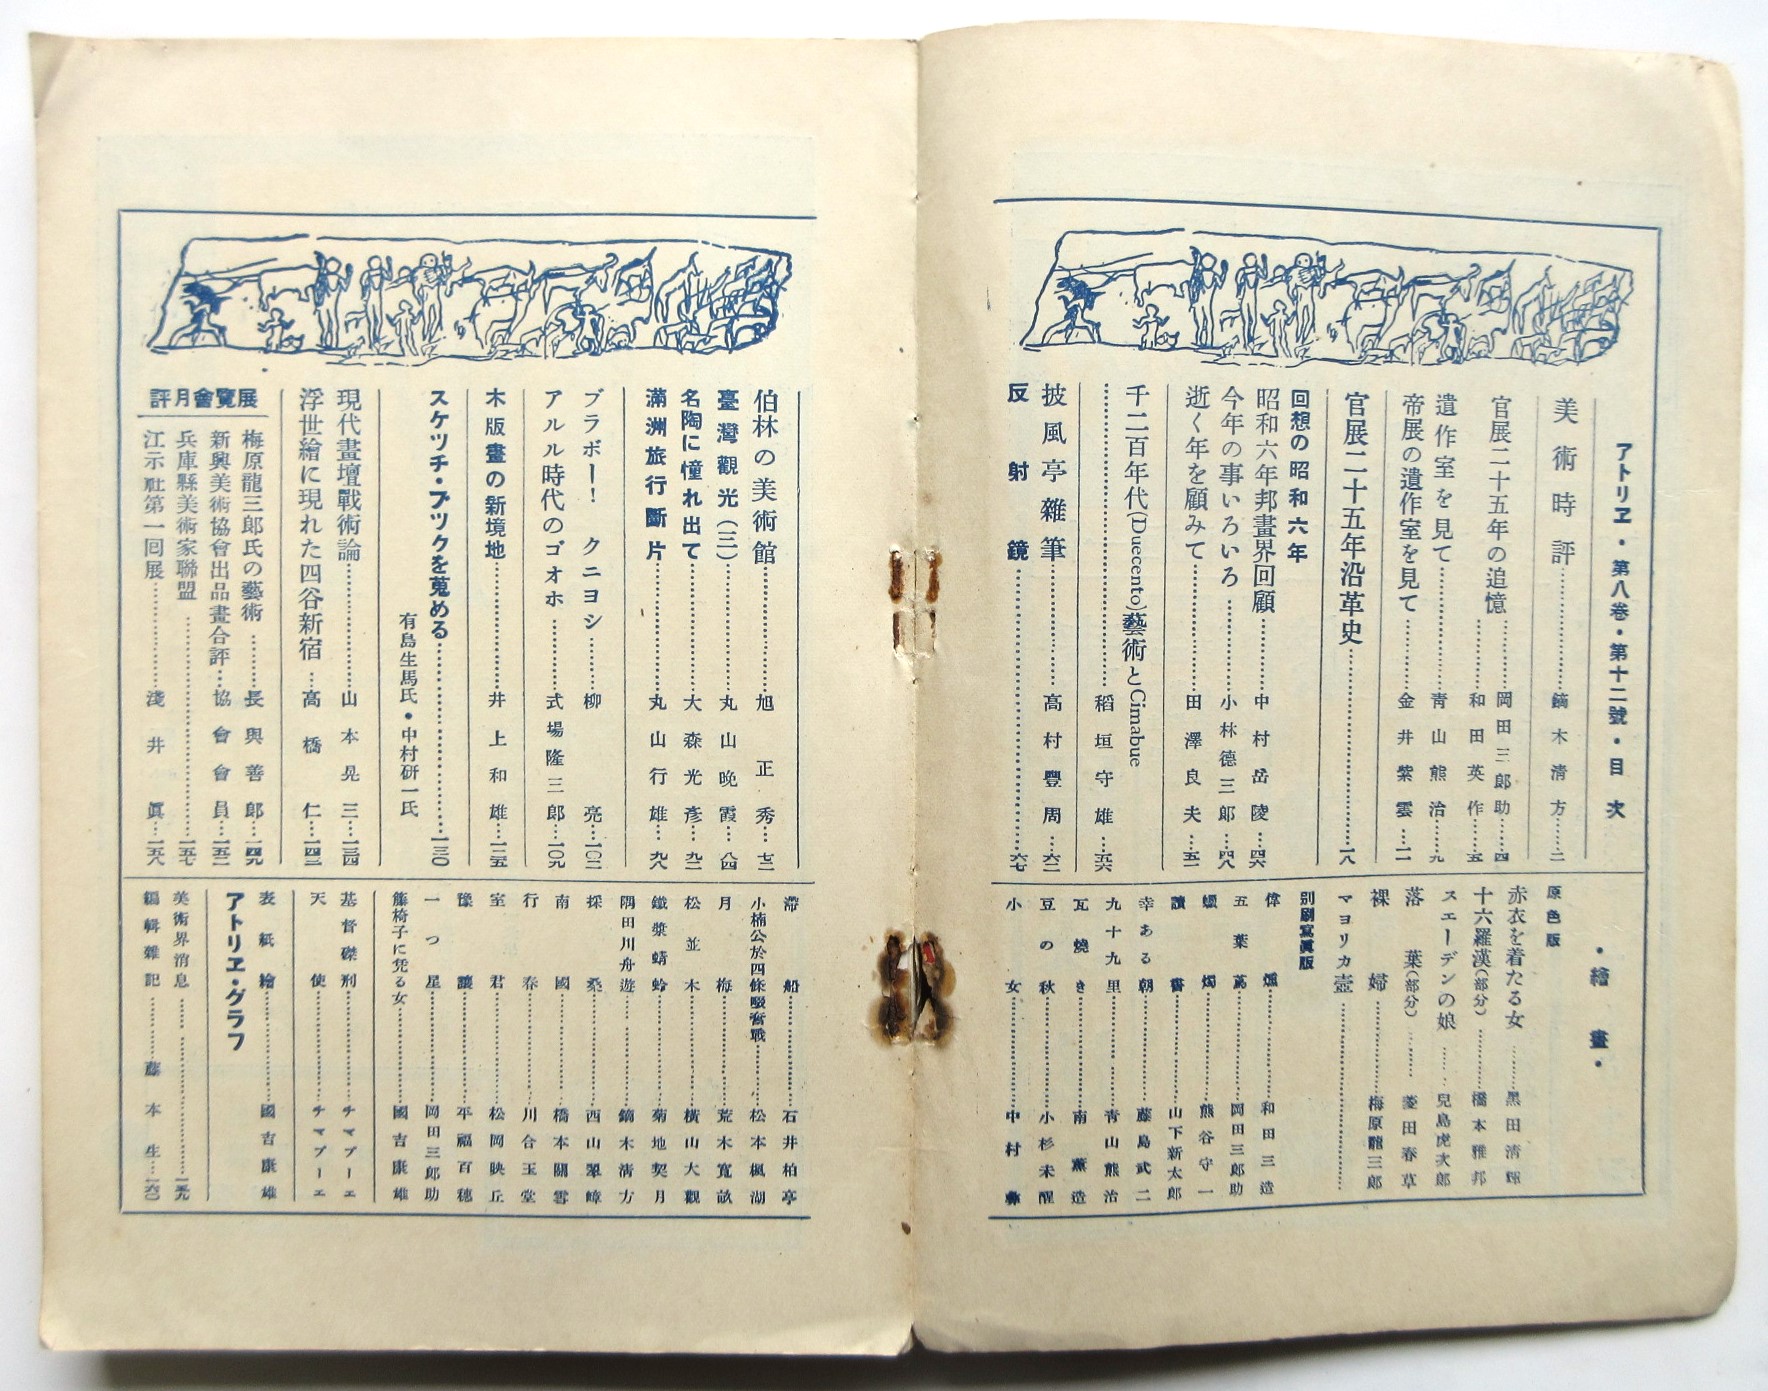 アトリヱ・第八巻・第十二號・目次
美術時評………鏑木清方…二
官展二十五年の追憶………岡田三郎助…四
和田英作…五
遺作室を見て………青山熊治…九
帝展の遺作室を見て………金井紫雲…一一
官展二十五年沿革史………一八
回想の昭和六年
昭和六年邦畫界回顧………中村岳陵…四六
今年の事いろいろ………小林德三郎…四八
逝く年を顧みて………田澤良夫…五一
千二百年代(Duecento)藝術とCimabue
………稻垣守雄…五六
披風亭雜筆………高村豐周…六二
反射鏡………六七
・繪畫・
原色版
赤衣を着たる女………黒田清輝
十六羅漢(部分)………橋本雅邦
スエーデンの娘………兒島虎次郎
落葉(部分)………菱田春草
裸婦………梅原龍三郎
マヨリカ壺………
別刷寫眞版
偉爐………和田三造
五葉蔦………岡田三郎助
蠟燭………熊谷守一
讀書………山下新太郎
幸ある朝………藤島武二
九十九里………青山熊治
瓦燒き………南薫造
豆の秋………小杉未醒
小女………中村彝
伯林の美術館………旭正秀…七二
臺灣觀光(三)………丸山晩霞…八四
名陶に憧れ出て………大森光彥…九二
滿洲旅行斷片………丸山行雄…九八
ブラボー！クニヨシ………柳亮…一〇二
アルル時代のゴオホ………式場隆三郎…一〇九
木版畫の新境地………井上和雄…一二五
スケツチ・ブツクを蒐める………一三〇
有島生馬氏・中村研一氏
現代畫壇戰術論………山本晃三…一三四
浮世繪に現れた四谷新宿…高橋仁…一四二
展覽會月評
梅原龍三郎氏の藝術………長與善郎…一四九
新興美術協會出品畫合評…協會會員…一五二
兵庫縣美術家聯盟………一五七
江示社第一回展………淺井眞…一五八
滯船………石井柏亭
小楠公於四條畷奮戰………松本楓湖
月梅………荒木寬畝
松並木………橫山大觀
鐵漿蜻蛉………菊地契月
隅田川舟遊………鏑木清方
採桑………西山翠嶂
南國………橋本關雪
行春………川合玉堂
室君………松岡映丘
豫讓………平福百穗
一つ星………岡田三郎助
籐椅子に凭る女………國吉康雄
基督磔刑………チマブーエ
天使………チマブーエ
表紙繪………國吉康雄
アトリヱ・グラフ
美術界消息………一五九
編輯雜記………藤本生…一六〇